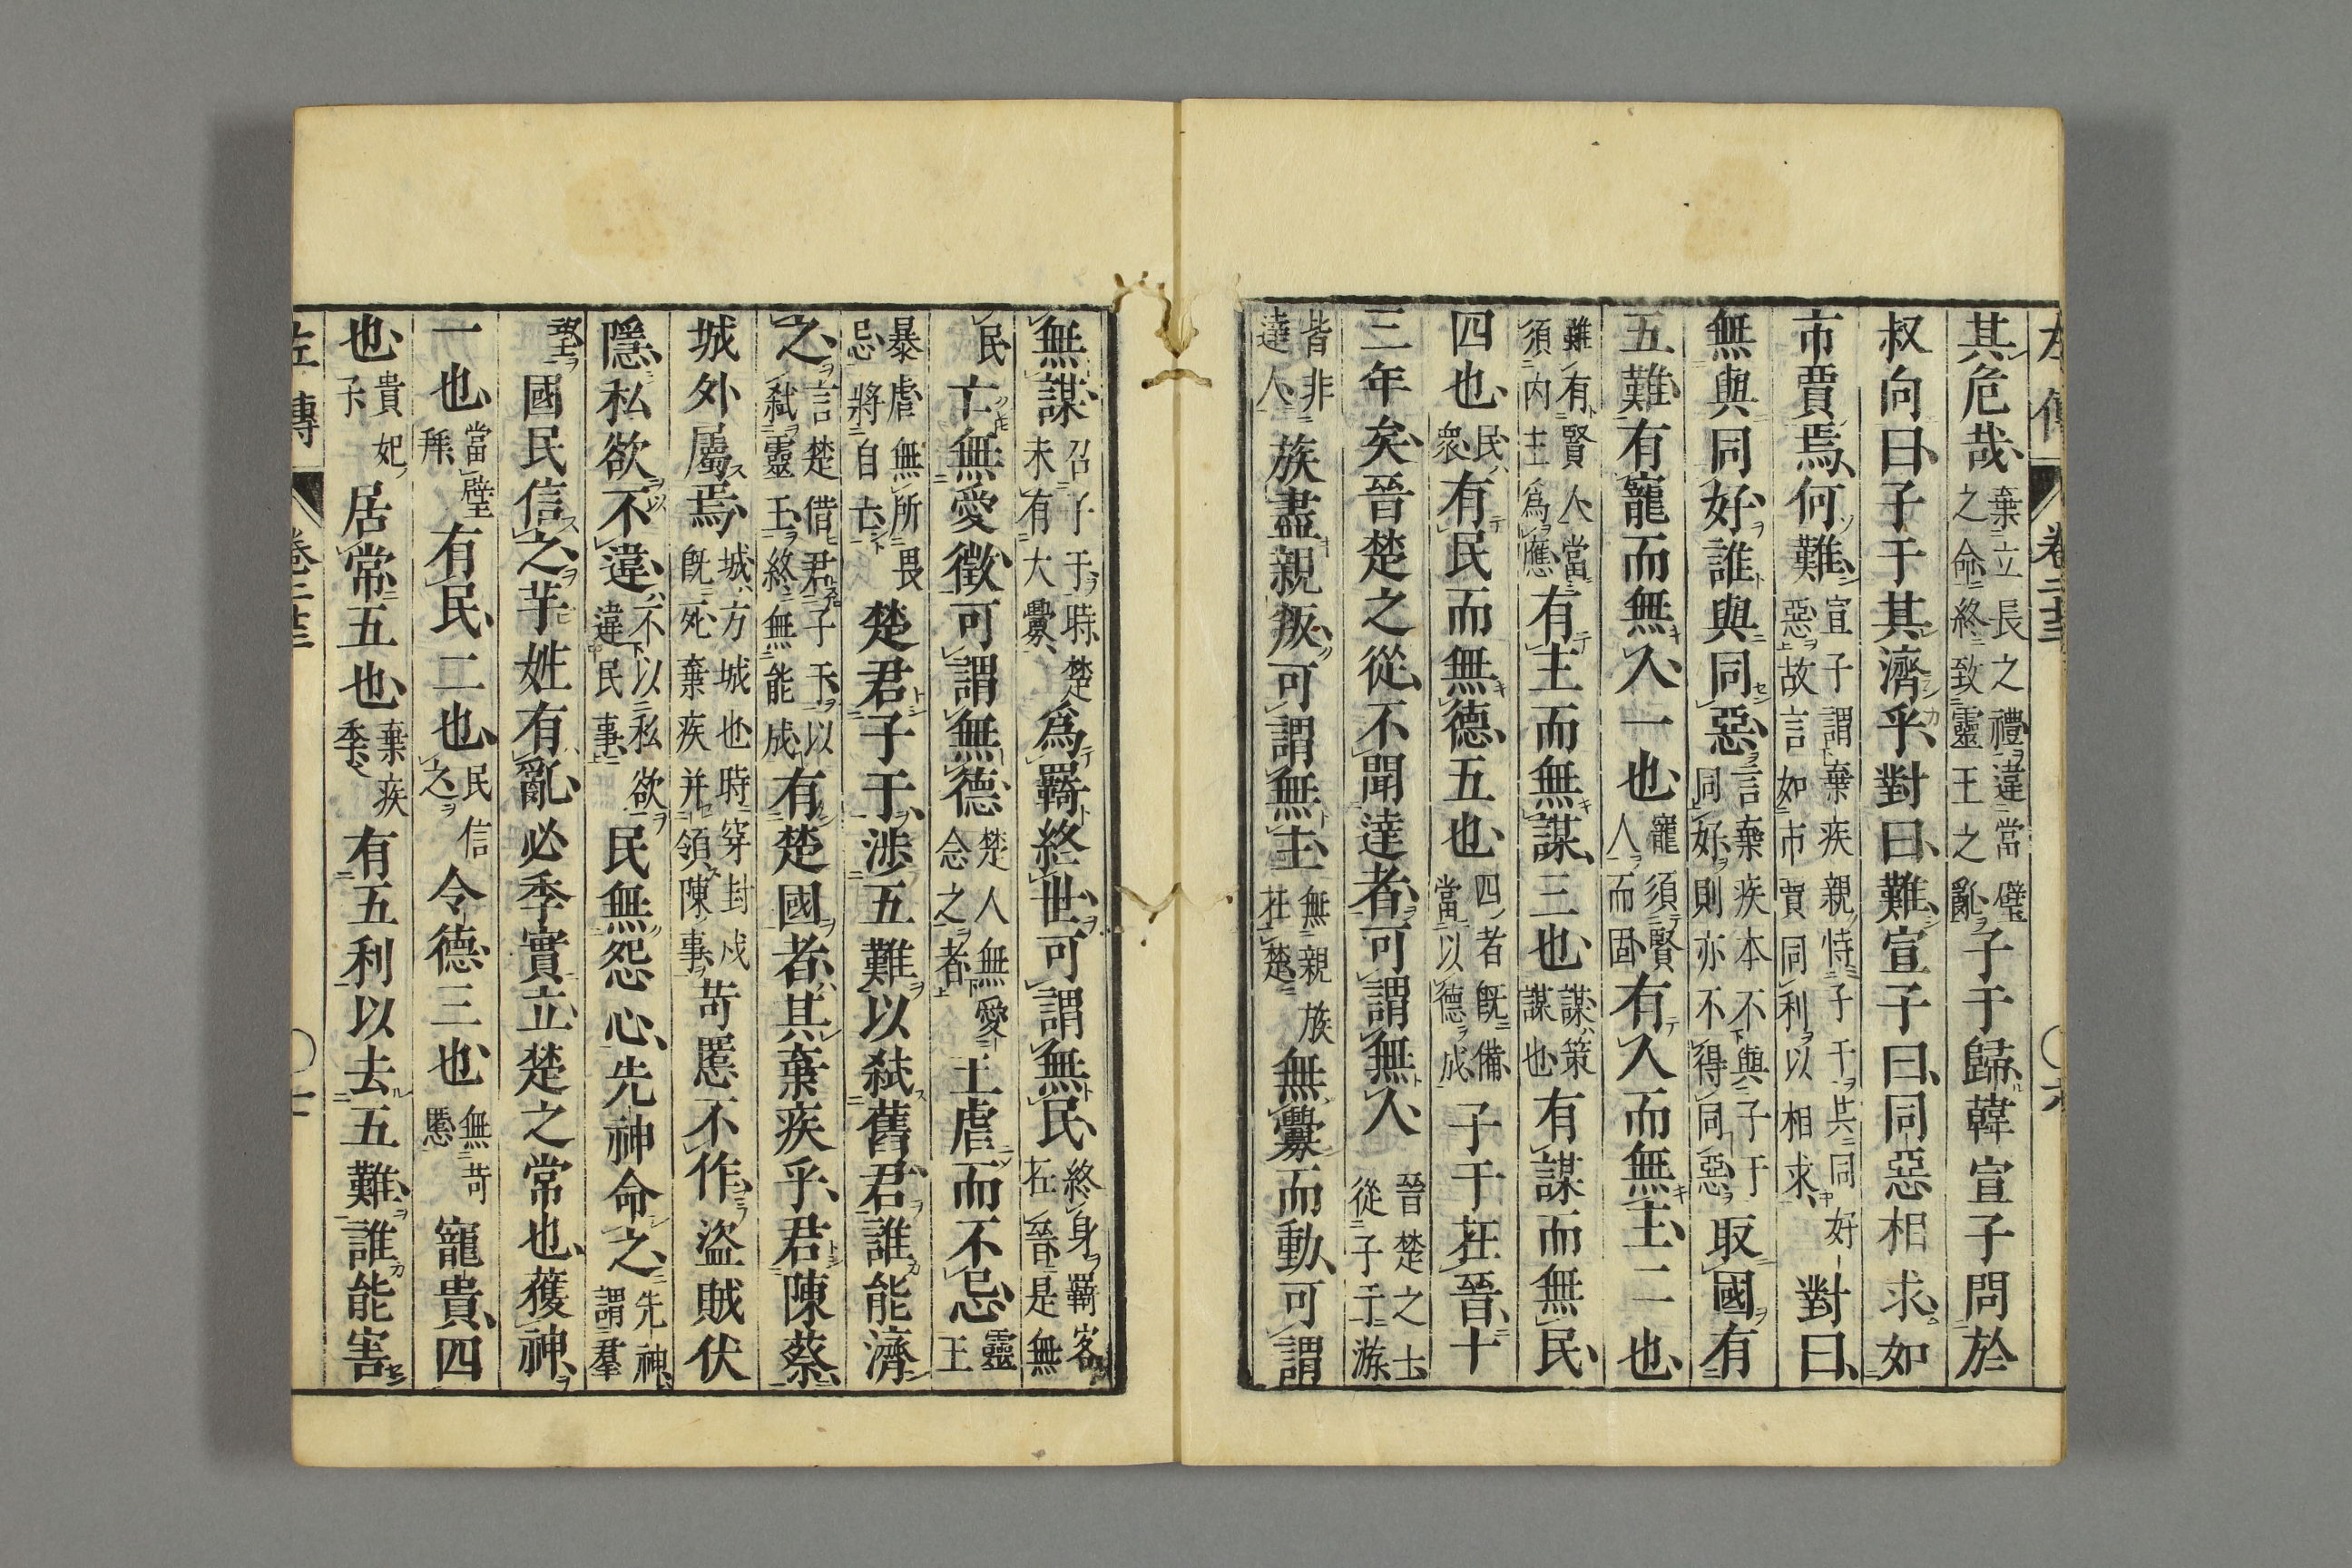 其危哉棄立長之禮違當璧之命終致靈王之亂子干歸韓宣子問於
叔向曰子干其濟乎對曰難宣子曰同惡相求如
市賈焉何難宣子謂棄疾親恃子干共同好惡故言如市賈同利以相求對曰
無與同好誰與同惡言棄疾本不與子干同好則亦不得同惡取國有
五難有寵而無人一也寵須賢人而固有人而無主二也
雖有賢人當須内主爲應有主而無謀三也謀策謀也有謀而無民
四也民衆有民而無德五也四者既備當以德成子干在晉十
三年矣晉楚之從不聞達者可謂無人晉楚之士從子干游
皆非達人族盡親叛可謂無主無親族在楚無釁而動可謂
無謀召子干時楚未有大釁爲羇終世可謂無民終身羇客在晉是無
民亡無愛徵可謂無德楚人無愛念之者王虐而不忌靈王
暴虐無所畏忌將自亡楚君子干涉五難以弑舊君誰能濟
之言楚借君子干以弑靈王終無能成有楚國者其棄疾乎君陳蔡
城外屬焉城方城也時穿封戍既死棄疾并領陳事苛慝不作盜賊伏
隱私欲不違不以私欲違民事民無怨心先神命之先神謂羣
望國民信之芈姓有亂必季實立楚之常也獲神
一也當璧拜有民二也民信之令德三也無苛慝寵貴四
也貴妃子居常五也棄疾季也有五利以去五難誰能害
左傳 卷二十三